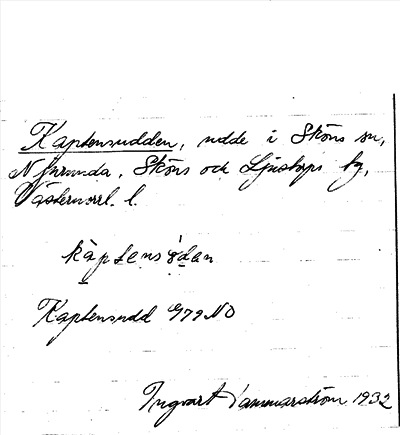 Kaptensudden, udde i Sköns sn,
Njurunda, Sköns och Ljustorps tg,
Västernorrl. l.
kàptensʉ́dan
Kaptensudd G79 NO
Ingvart Hammarström 1932